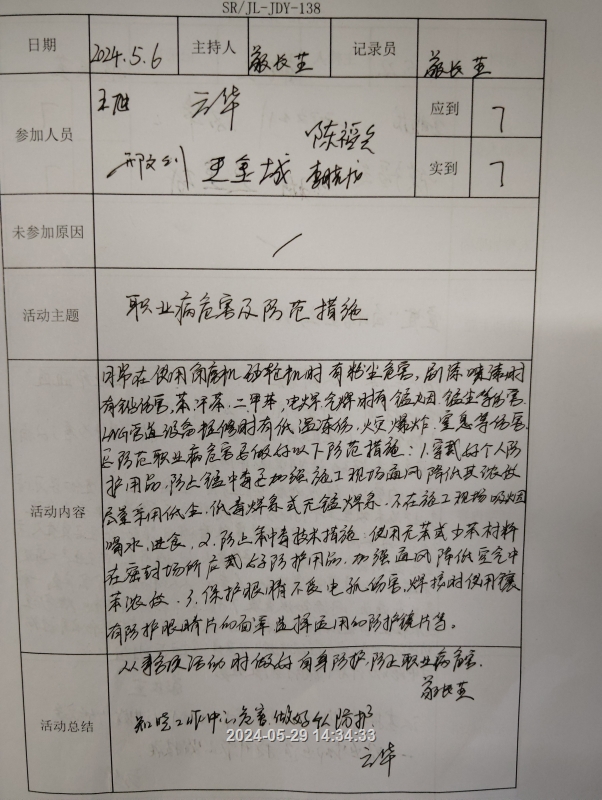 SR/JL-JDY-138
日期 2024.5.6 主持人 记录员
参加人员 云华 应到 7
实到 7
未参加原因 /
活动主题 职业病危害及防范措施
活动内容
日常在使用角磨机砂轮机时有粉尘危害,刷漆喷漆时
有铅伤害,苯,甲苯,二甲苯,电焊气焊时有锰烟,锰尘等伤害
LNG管道设备检修时有低温冻伤,火灾,爆炸,窒息等伤害
防范职业病危害应做好以下防范措施:1.穿戴好个人防
护用品,防止锰中毒 加强施工现场通风降低其浓度
尽量采用低尘,低毒焊条或无锰焊条,不在施工现场吸烟
喝水,进食,2.防止苯中毒技术措施,使用无苯或少苯材料
在密封场所应戴好防护用品,加强通风降低空气中
苯浓度.3.保护眼睛不受电弧伤害,焊接时使用镶
有防护眼睛片的面罩选择适用的防护镜片等。
活动总结
从事各项活动时做好自身防护,防止职业病危害.
知晓工作中心危害,做好个人防护.
云华
2024-05-29 14:34:33